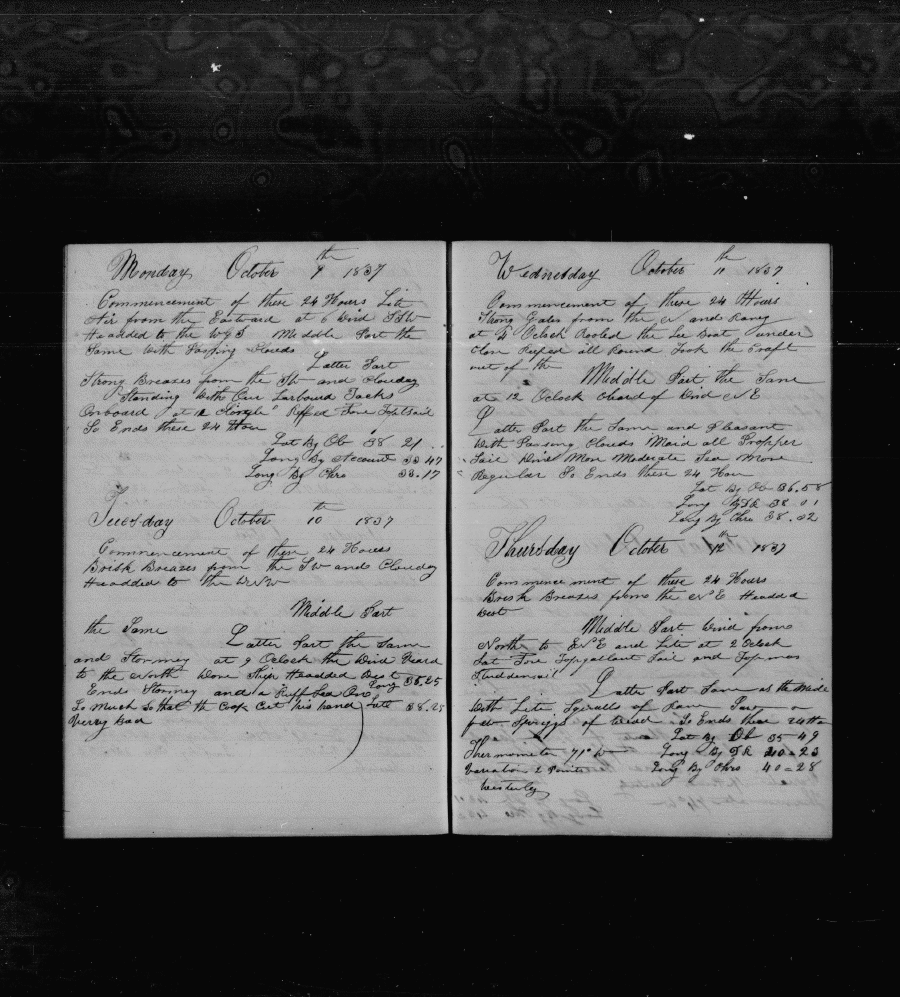 Monday October 9th 1837
Commencement of these 24 Hours Lite
Air from the Eastward at 6 Wind SSW
Headded to the W & S Middle Part the
Same With Passing Clouds
Latter Part
Strong Breazes from the SW and Clouday
Standing With Our Larboard Tacks
Onboard at 12 Reffed Fore Topsail
So Ends these 24 Hour
Lat By Ob 38 21
Long By Account 33 47
Long By Chro 33.17
Tuesday October 10 1837
Commencement of these 24 Houers
Brisk Breazes from the SW and Clouday
Headded to the WNW
Middle Part
the Same
Latter Part the Same
and Stormey at 9 Oclock the Wind
to the North Wore Ship Headded West
Long 35.25
Ends Stormey and a Ruff Sea On
So Much So that th Cook Cut his hand
Late 38.25
Verry Bad
Wednesday October 11th 1837
Commencement of these 24 Hours
Strong Gales from the N and Raney
at Oclock the Lee Boat under
Clou Reefed all Round Took the Craft
out of the
Middle Part the Same
at 12 Oclock Wind NE
Latter Part the Same and Pleasant
With Passing Clouds Maid all Propper
Sail Wind Mor Moderate Sea More
Regular So Ends these 24 Hour
Lat By Ob 36.58
Long By DR 38 01
Long By Chro 38.02
Thursday October 12th 1837
Commencement of these 24 Hours
Brisk Breazes from the NE Headed
West
Middle Part Wind from
North to ENE and Lite at 2 Oclock
Sat Fore Topgallant Sail and Topmas
Studdensail
Latter Part Same as the Midle
With Lite Squalls of Rane a
few Spriggs of Weed So Ends these 24 Hr
Lat By Ob 35 49
Thermometer 71° Long By DR 40=23
Variation 2 Points Long By Chro 40=28
Westerly